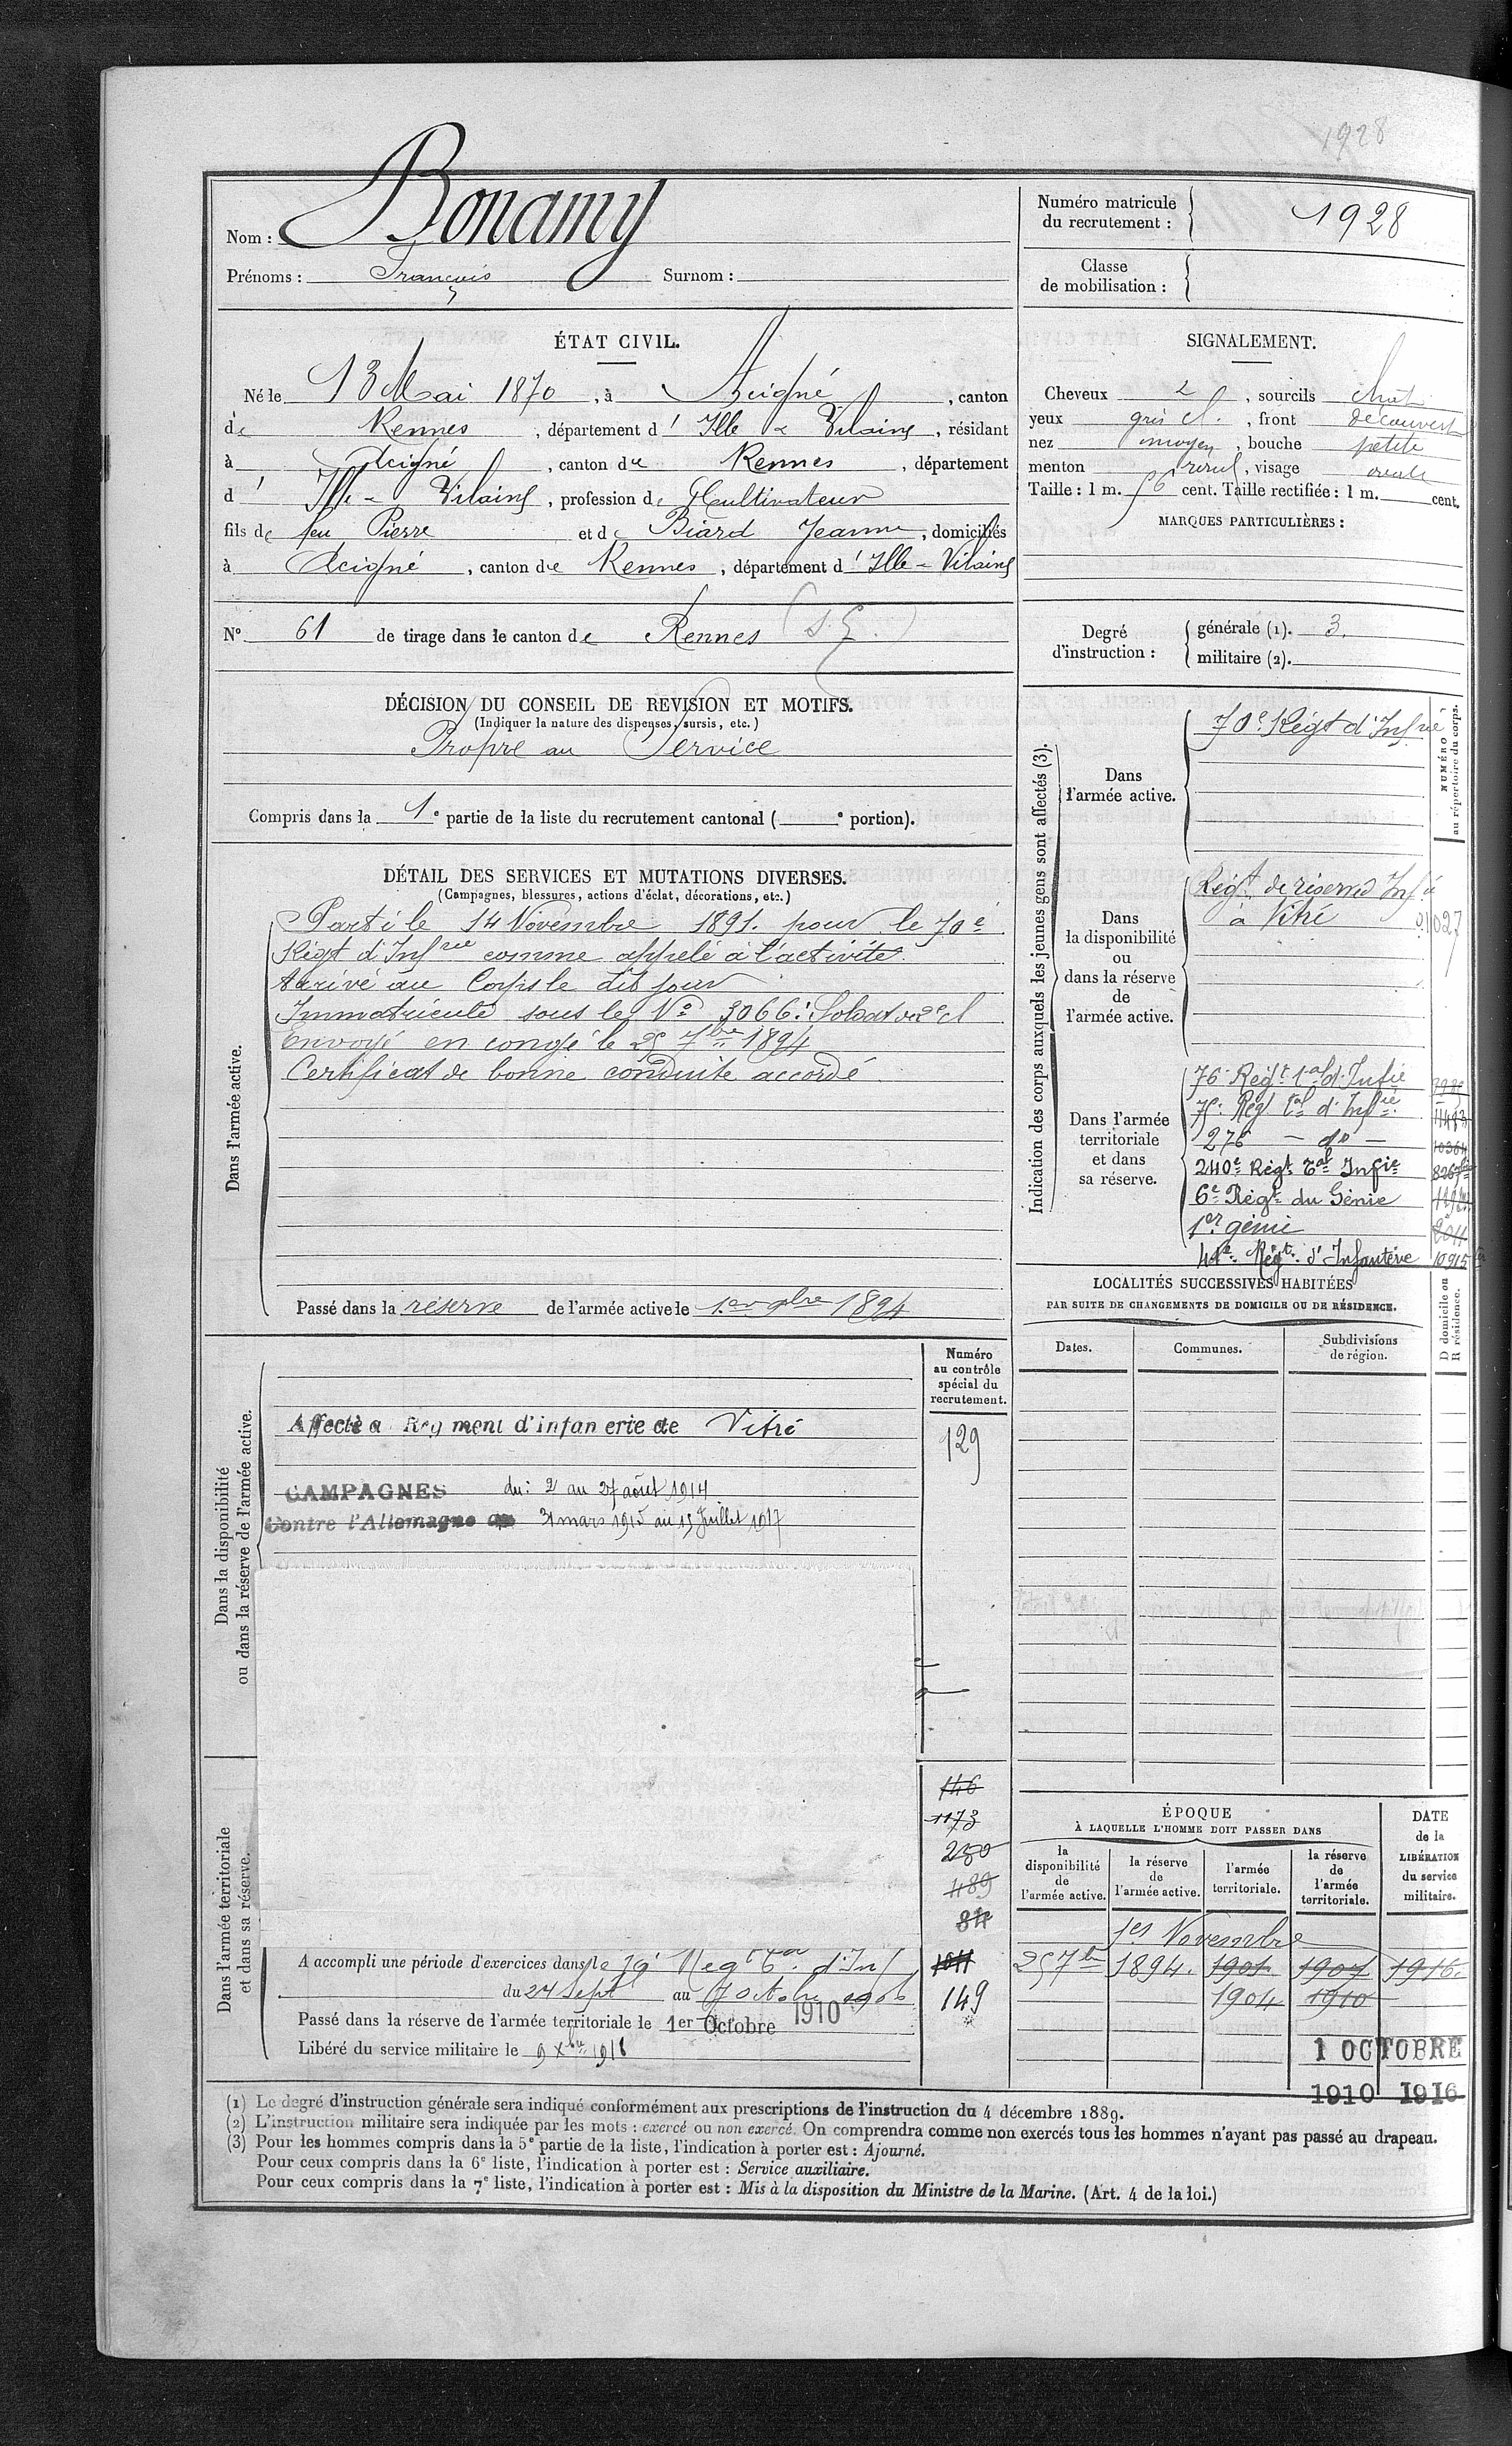 1928
Nom : Bonamy
Prénoms : François Surnom :
Numéro matricule du recrutement : 1928
Classe de mobilisation :
ÉTAT CIVIL.
Né le 13 Mai 1870, à Acigné, canton
de Rennes, département d'Ille & Vilaine, résidant
à Acigné, canton de Rennes, département
d'Ille - Vilaine, profession de Cultivateur
fils de feu Pierre et de Biard Jeanne, domiciliés
à Acigné, canton de Rennes, département d'Ille - Vilaine
N° 61 de tirage dans le canton de Rennes (S. E.)
SIGNALEMENT.
Cheveux 2, sourcils chat
yeux gris cl., front découvert
nez moyen, bouche petite
menton rond, visage ovale
Taille : 1 m. 56 cent. Taille rectifiée : 1 m. cent.
MARQUES PARTICULIÈRES :
Degré d'instruction : générale (1). 3.
militaire (2).
DÉCISION DU CONSEIL DE REVISION ET MOTIFS.
(Indiquer la nature des dispenses, sursis, etc.)
Propre au Service
Compris dans la 1e partie de la liste du recrutement cantonal ( e portion).
DÉTAIL DES SERVICES ET MUTATIONS DIVERSES.
(Campagnes, blessures, actions d'éclat, décorations, etc.)
Dans l'armée active.
Parti le 14 Novembre 1891. pour le 70e
Régt d'Infrie comme appelé à l'activité.
Arrivé au Corps le dit jour
Immatriculé sous le No 3066. Soldat de 2e cl
Envoyé en congé le 25 7bre 1894
Certificat de bonne conduite accordé.
Passé dans la réserve de l'armée active le 1er 9bre 1894
Indication des corps auxquels les jeunes gens sont affectés (3).
NUMÉRO au répertoire du corps.
Dans l'armée active.
70e Régt d'Infrie
Dans la disponibilité ou dans la réserve de l'armée active.
Régt de réserve Infie
à Vitré
Dans l'armée territoriale et dans sa réserve.
76e Régt tal d'Infie
75e Régt tal d'Infie
276 - do -
10364
240e Régt Tal Infie
6e Régt du Génie
1er génie
41e Régt d'Infanterie 10915
LOCALITÉS SUCCESSIVES HABITÉES
PAR SUITE DE CHANGEMENTS DE DOMICILE OU DE RÉSIDENCE.
Dates. Communes. Subdivisions de région. D domicile ou R résidence.
Dans la disponibilité ou dans la réserve de l'armée active.
Numéro au contrôle spécial du recrutement.
Affecté a Rég ment d'infan erie de Vitré
129
CAMPAGNES du : 2 au 27 août 1914
Contre l'Allemagne 31 mars 1915 au 15 Juillet 1917
Dans l'armée territoriale et dans sa réserve.
146
1173
250
489
84
1011
149
A accompli une période d'exercices dans le 76e Regt Tal d'Inf
du 24 Sept au 7 Octobre 1906
Passé dans la réserve de l'armée territoriale le 1er Octobre 1910
Libéré du service militaire le 9 Xbre 1918
ÉPOQUE
À LAQUELLE L'HOMME DOIT PASSER DANS
la disponibilité de l'armée active. la réserve de l'armée active. l'armée territoriale. la réserve de l'armée territoriale.
DATE de la LIBÉRATION du service militaire.
1er Novembre
25 7bre 1894. 1901 1907 1916
1904 1910
1 OCTOBRE
1910 1916
(1) Le degré d'instruction générale sera indiqué conformément aux prescriptions de l'instruction du 4 décembre 1889.
(2) L'instruction militaire sera indiquée par les mots : exercé ou non exercé. On comprendra comme non exercés tous les hommes n'ayant pas passé au drapeau.
(3) Pour les hommes compris dans la 5e partie de la liste, l'indication à porter est : Ajourné.
Pour ceux compris dans la 6e liste, l'indication à porter est : Service auxiliaire.
Pour ceux compris dans la 7e liste, l'indication à porter est : Mis à la disposition du Ministre de la Marine. (Art. 4 de la loi.)